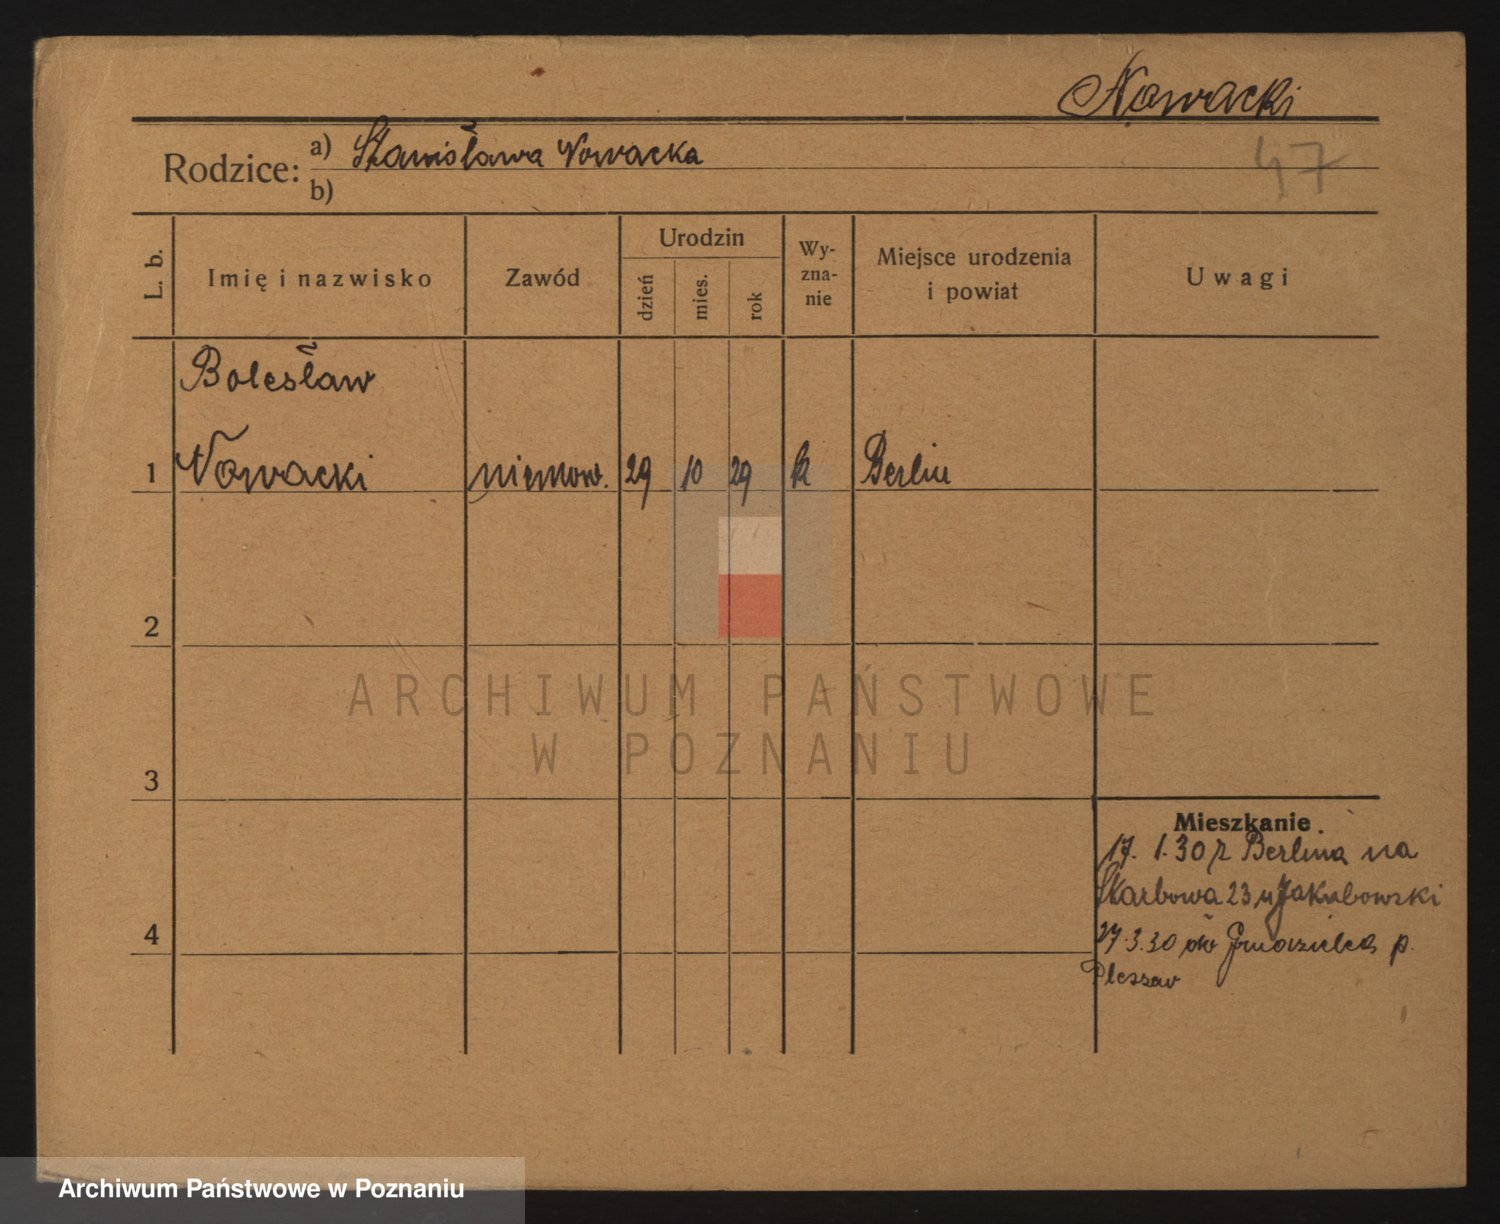 Nowacki
47
Rodzice: a) Stanisława Nowacka
b)
L. b.
Imię i nazwisko
Zawód
Urodzin
dzień
mies.
rok
Wy-
zna-
nie
Miejsce urodzenia
i powiat
Uwagi
Bolesław
1 Nowacki niemow. 29 10 29 k Berlin
2
3
4
ARCHIWUM PAŃSTWOWE
W POZNANIU
Mieszkanie
17. 1.30 z Berlina na
Skarbowa 23 u Jakubowski
27.3.30 do p.
Pleszew
Archiwum Państwowe w Poznaniu